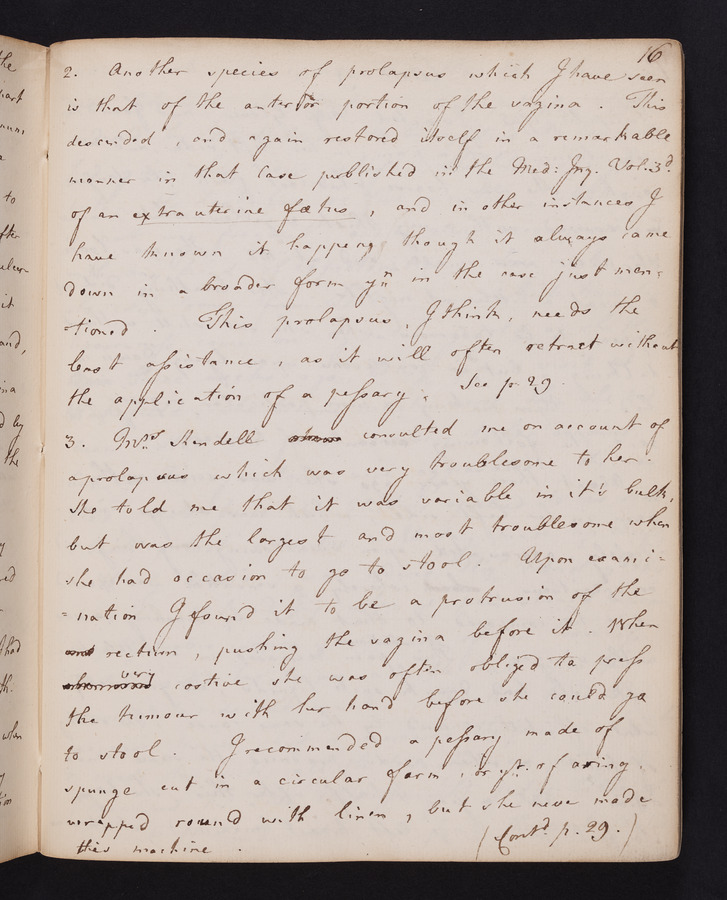 16
2. Another species of prolapsus which I have seen
is that of the anterior portion of the vagina. This
descended, and again restored itself in a remarkable
manner in that Case published in the Med: Inq. Vol. 3d.
of an extra uterine fœtus, and in other instances I
have known it happen, though it always came
down in a broader form yn in the case just men=
tioned. This prolapsus, I think, needs the
least assistance, as it will often retract without
the application of a pessary. See p. 29.
3. Mrs. Kendell consulted me on account of
a prolapsus which was very troublesome to her.
She told me that it was variable in it's bulk,
but was the largest and most troublesome when
she had occasion to go to stool. Upon exami=
=nation I found it to be a protrusion of the
and rectum, pushing the vagina before it. When
very costive she was often obliged to press
the tumour with her hand before she could go
to stool. I recommended a pessary made of
spunge cut in a circular form, or yt. of a ring
wrapped round with linen, but she never made
this machine. (Contd. p. 29.)